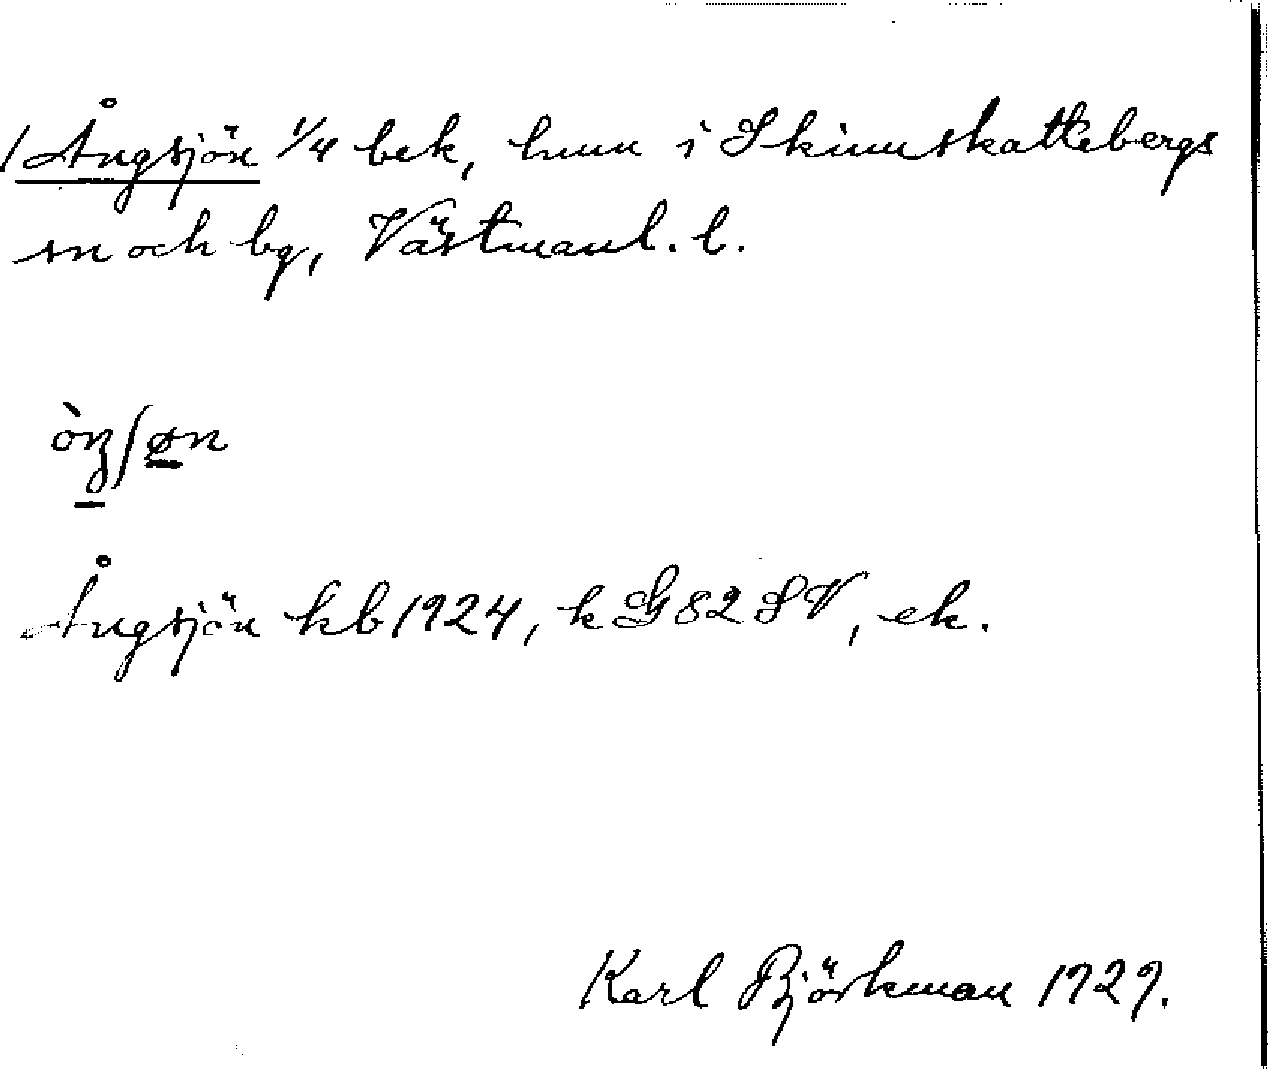 1 Ångsjön 1/4 bek, hmn i Skinnskattebergs
sn och bg, Västmanl. l.
Ångsjön kb 1924, k G 82 SV, ek.
Karl Björkman 1929.